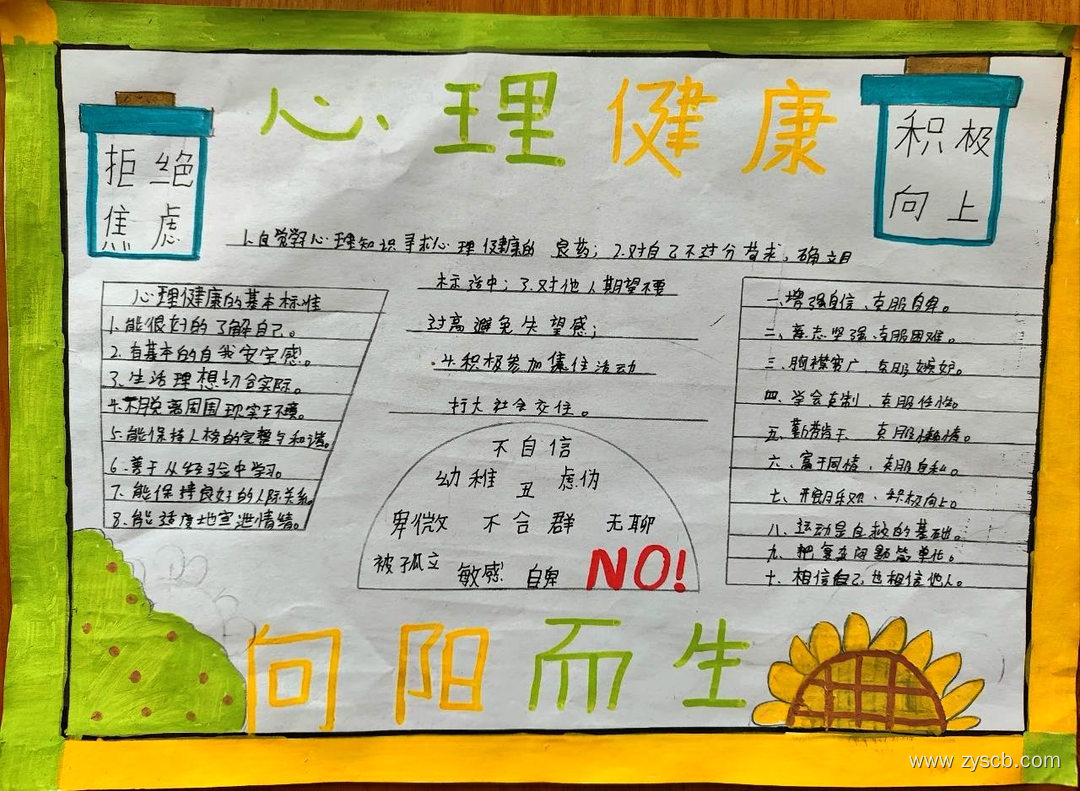 心理健康
拒绝
焦虑
积极
向上
1.自觉学心理知识寻求心理健康的良药；2.对自己不过分苛求，确立目
标适中；3.对他人期望不要
过高避免失望感；
4.积极参加集体活动
扩大社会交往。
心理健康的基本标准
1.能很好的了解自己。
2.有基本的自我安全感。
3.生活理想切合实际。
4.不脱离周围现实环境。
5.能保持人格的完整与和谐。
6.善于从经验中学习。
7.能保持良好的人际关系。
8.能适度地宣泄情绪。
不自信
幼稚 丑 虚伪
卑微 不合群 无聊
被孤立 敏感 自卑 NO!
一、增强自信、克服自卑。
二、意志坚强、克服困难。
三、胸襟宽广、克服嫉妒。
四、学会克制、克服任性。
五、勤劳肯干、克服懒惰。
六、富于同情、克服自私。
七、开朗乐观、积极向上。
八、运动是自救的基础。
九、把复杂问题简单化。
十、相信自己也相信他人。
向阳而生
www.zyscb.com